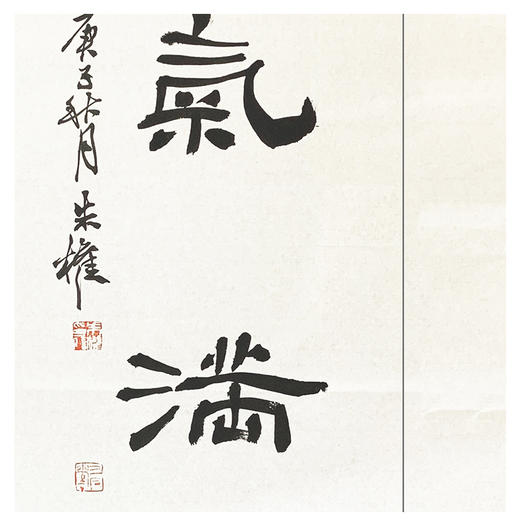 氣滿
庚子秋月朱權